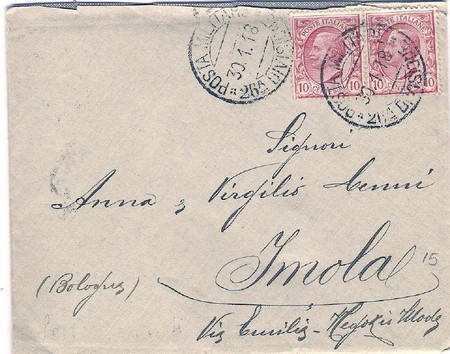 POSTA MILITARE
30.1.18
26A DIVISIONE
POSTE ITALIANE
10 10
POSTE ITALIANE
10 10
POSTA MILITARE
30.1.18
26A DIVISIONE
Signori
Anna e Virgilio Cenni
Imola
15
(Bologna)
Via Emilia - Negozio Mode